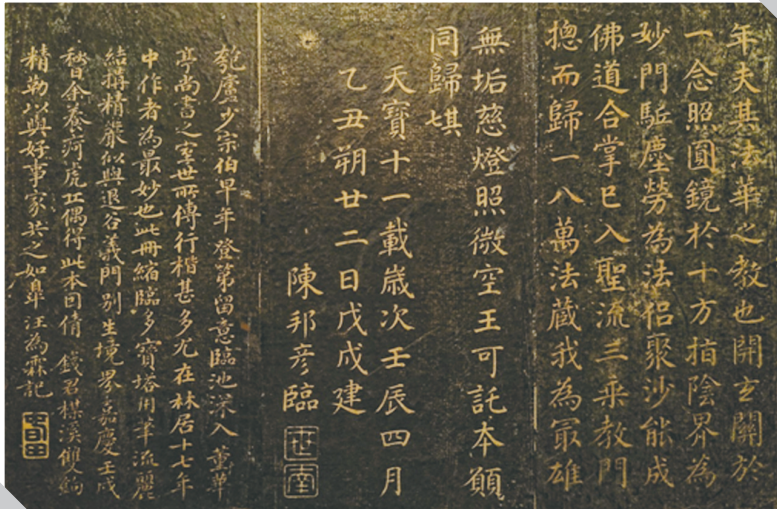 年夫其法華之教也開玄關於
一念照圓鏡於十方指陰界為
妙門駈塵勞為法侶聚沙能成
佛道合掌已入聖流三乘教門
摠而歸一八萬法藏我為冣雄
無垢慈燈照微空王可託本願
同歸
天寶十一載歲次壬辰四月
乙丑朔廿二日戊戌建
陳邦彥臨
世南
匏廬少宗伯早年登第留意臨池深入董華
亭尚書之室世所傳行楷甚多尤在林居十七年
中作者為最妙也此冊縮臨多寶塔用筆流麗
結搆精嚴似與退谷義門別生境界嘉慶壬戌
秋日余養疴虎丘偶得此本因倩錢君楳溪雙鉤
精勒以與好事家共之如皋汪為霖記